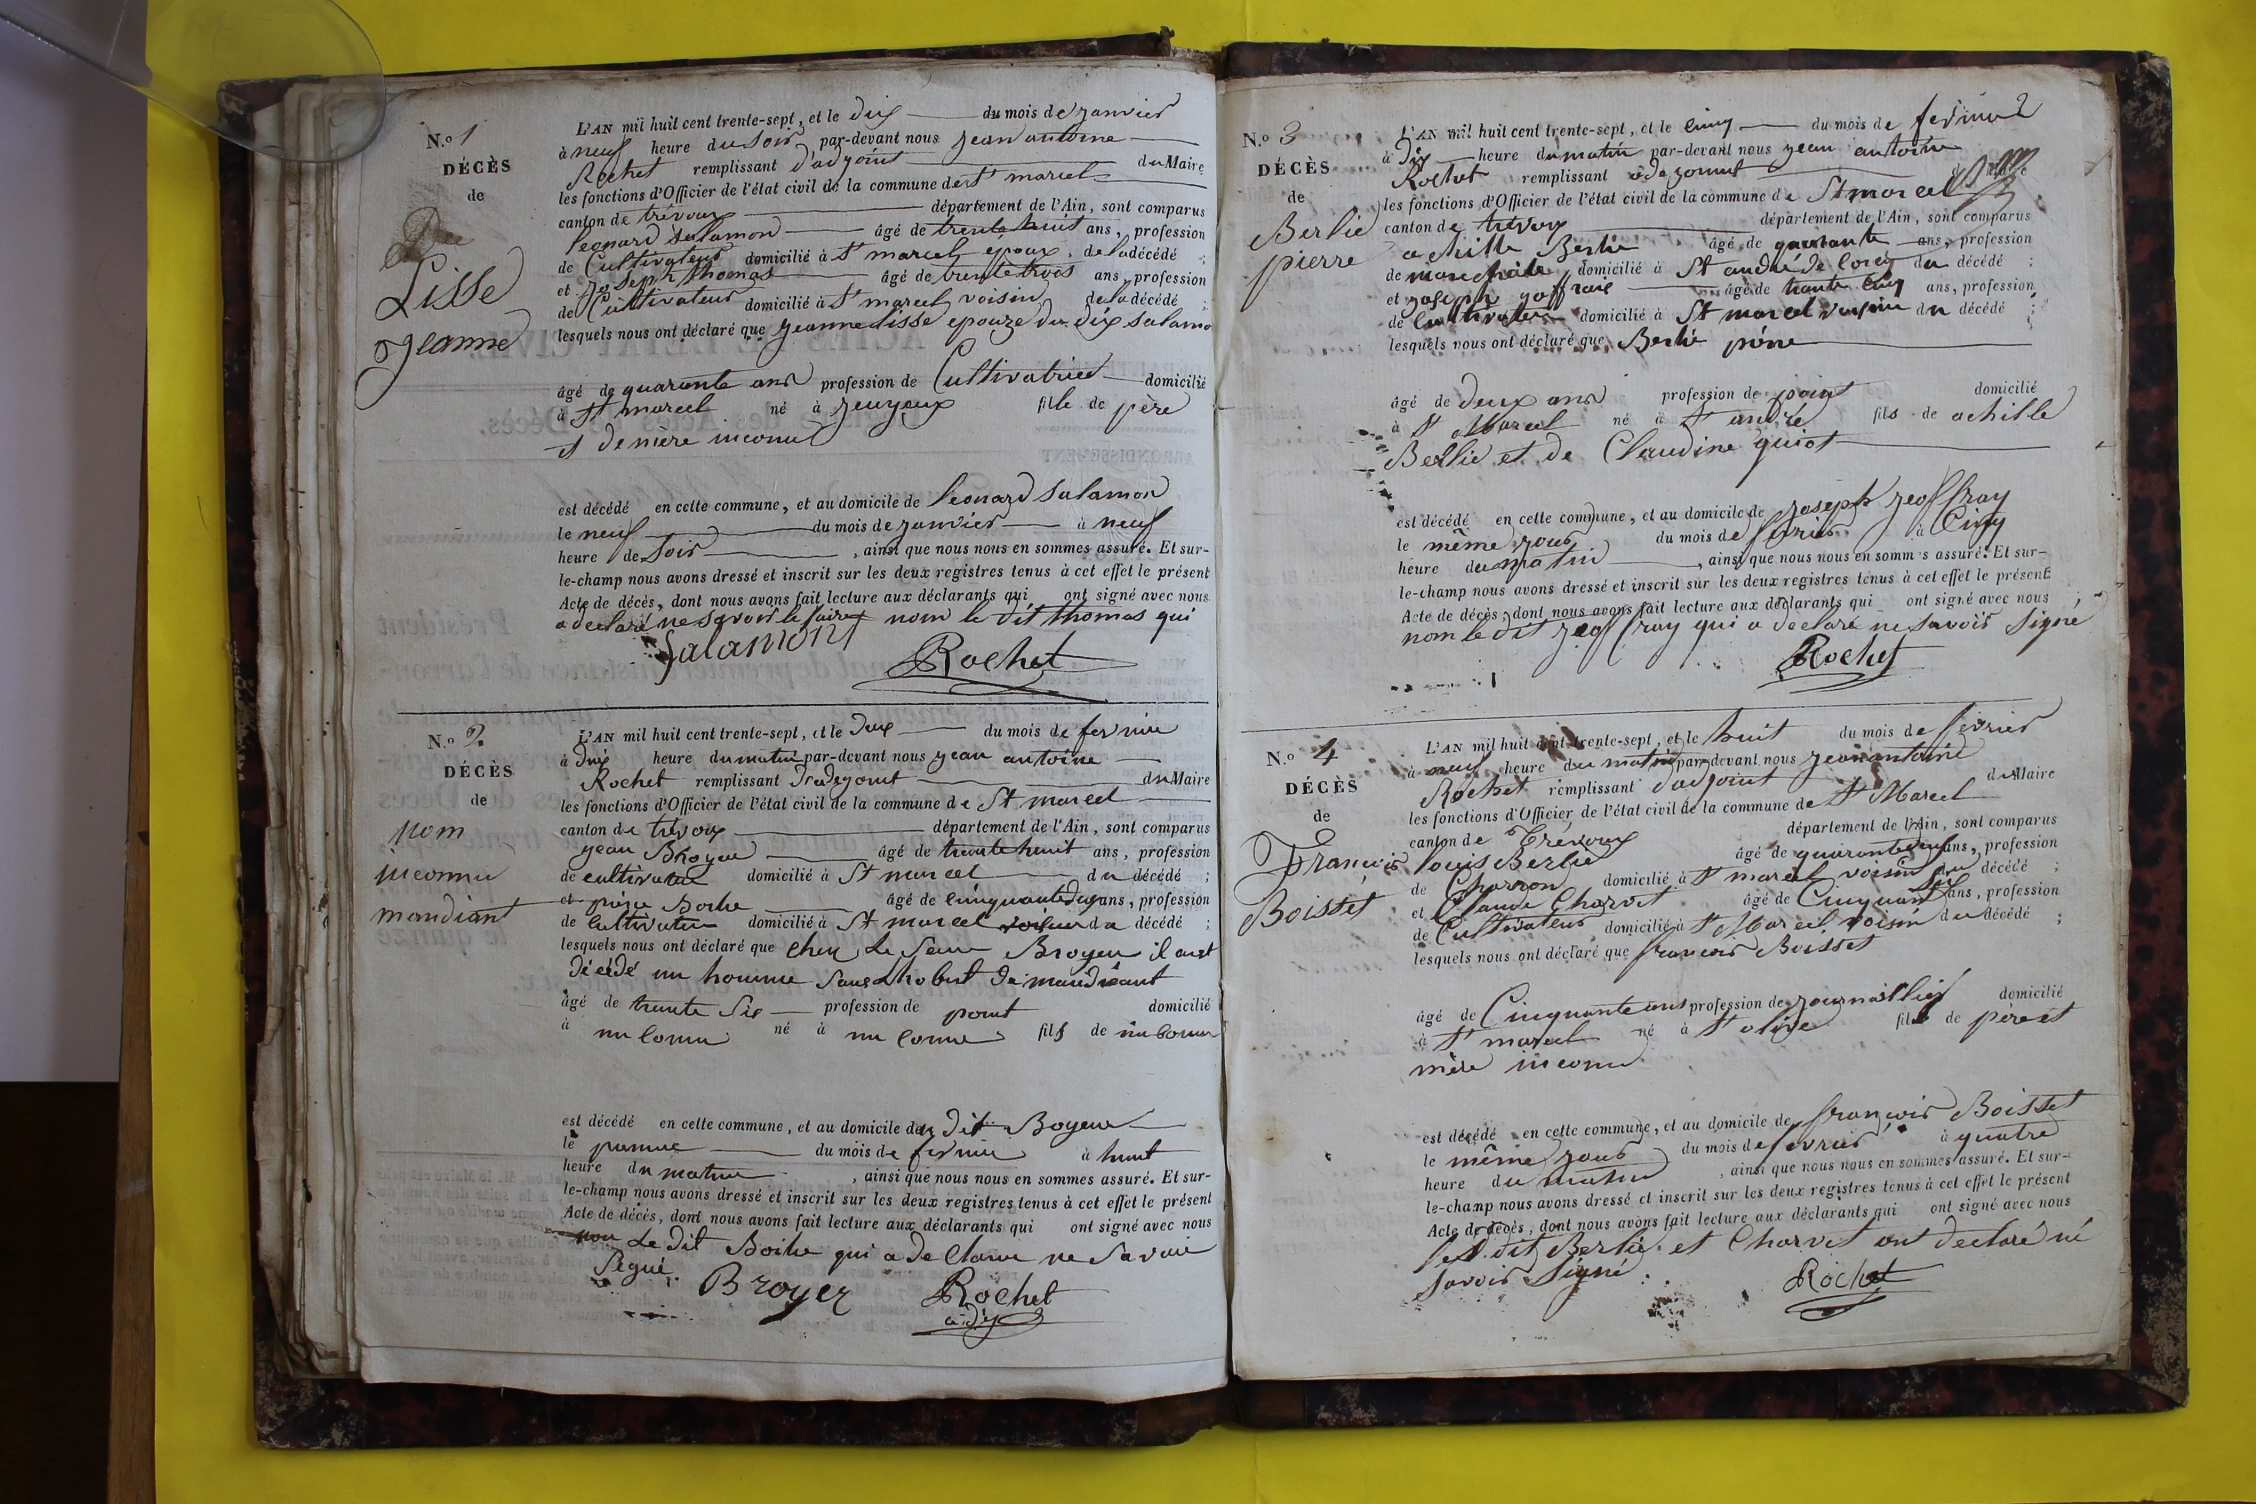 N.o 1
DÉCÈS
de
Lisse
Jeanne
L'AN mil huit cent trente-sept, et le dix du mois de janvier
à neuf heure du soir par-devant nous jean antoine
Rochet remplissant d'adjoint du Maire
les fonctions d'Officier de l'état civil de la commune de st marcel
canton de trévoux département de l'Ain, sont comparus
leonard salamon âgé de trente huit ans, profession
de Cultivateur domicilié à st marcel époux de la décédé ;
et joseph thomas âgé de trente trois ans, profession
de Cultivateur domicilié à st marcel voisin de la décédé ;
lesquels nous ont déclaré que jeanne lisse epouze du dix salamo
âgé de quarante ans profession de Cultivatrice domicilié
à st marcel né à fille de père
et de mère inconu
est décédé en cette commune, et au domicile de leonard salamon
le neuf du mois de janvier à neuf
heure de soir , ainsi que nous nous en sommes assuré. Et sur-
le-champ nous avons dressé et inscrit sur les deux registres tenus à cet effet le présent
Acte de décès, dont nous avons fait lecture aux déclarants qui ont signé avec nous
a declaré ne savoir le faire nom le dit thomas qui
Salamon
Rochet
N.o 2
DÉCÈS
de
nom
inconnu
mandiant
L'AN mil huit cent trente-sept, et le deux du mois de
à dix heure du matin par-devant nous jean antoine
Rochet remplissant du Maire
les fonctions d'Officier de l'état civil de la commune de St marcel
canton de trévoux département de l'Ain, sont comparus
jean Broyer âgé de trente huit ans, profession
de cultivateur domicilié à St marcel du décédé ;
et âgé de ans, profession
de cultivateur domicilié à St marcel voisin du décédé ;
lesquels nous ont déclaré que chez le Broyer il
décédé un homme de mandiant
âgé de trente six profession de point domicilié
à né à fils de
est décédé en cette commune, et au domicile du dit
le du mois de à huit
heure du matin , ainsi que nous nous en sommes assuré. Et sur-
le-champ nous avons dressé et inscrit sur les deux registres tenus à cet effet le présent
Acte de décès, dont nous avons fait lecture aux déclarants qui ont signé avec nous
non Le dit qui a ne savoir
Signé.
Broyer
Rochet
adj
N.o 3
DÉCÈS
de
Berlié
pierre
L'AN mil huit cent trente-sept, et le cinq du mois de
à dix heure du matin par-devant nous jean antoine
Rochet remplissant
les fonctions d'Officier de l'état civil de la commune de St marcel
canton de trévoux département de l'Ain, sont comparus
achille Berlié âgé de quarante ans, profession
de domicilié à St andré de corcy du décédé ;
et joseph âgé de trente cinq ans, profession
de cultivateur domicilié à St marcel voisin du décédé ;
lesquels nous ont déclaré que Berlié
âgé de deux ans profession de point domicilié
à st Marcel né à st andré fils de achille
Berlié et de Claudine guiot
est décédé en cette commune, et au domicile de joseph jeoffray
le même jour du mois de février à Cinq
heure du matin , ainsi que nous nous en sommes assuré. Et sur-
le-champ nous avons dressé et inscrit sur les deux registres tenus à cet effet le présent
Acte de décès, dont nous avons fait lecture aux déclarants qui ont signé avec nous
nom le dit jeoffray qui a declaré ne savoir signé
Rochet
N.o 4
DÉCÈS
de
François
Boisset
L'AN mil huit cent trente-sept, et le huit du mois de février
à neuf heure du matin par-devant nous jean antoine
Rochet remplissant d'adjoint du Maire
les fonctions d'Officier de l'état civil de la commune de st Marcel
canton de Trévoux département de l'Ain, sont comparus
louis Berlié âgé de ans, profession
de Charron domicilié à st marcel voisin du décédé ;
et Claude Charvet âgé de ans, profession
de Cultivateur domicilié à st Marcel voisin du décédé ;
lesquels nous ont déclaré que françois Boisset
âgé de Cinquante ans profession de journallier domicilié
à st marcel né à st olive fils de père et
mère inconu
est décédé en cette commune, et au domicile de françois Boisset
le même jour du mois de fevrier à quatre
heure du matin , ainsi que nous nous en sommes assuré. Et sur-
le-champ nous avons dressé et inscrit sur les deux registres tenus à cet effet le présent
Acte de décès, dont nous avons fait lecture aux déclarants qui ont signé avec nous
les dit Berlié et Charvet ont declaré né
savoir signé
Rochet